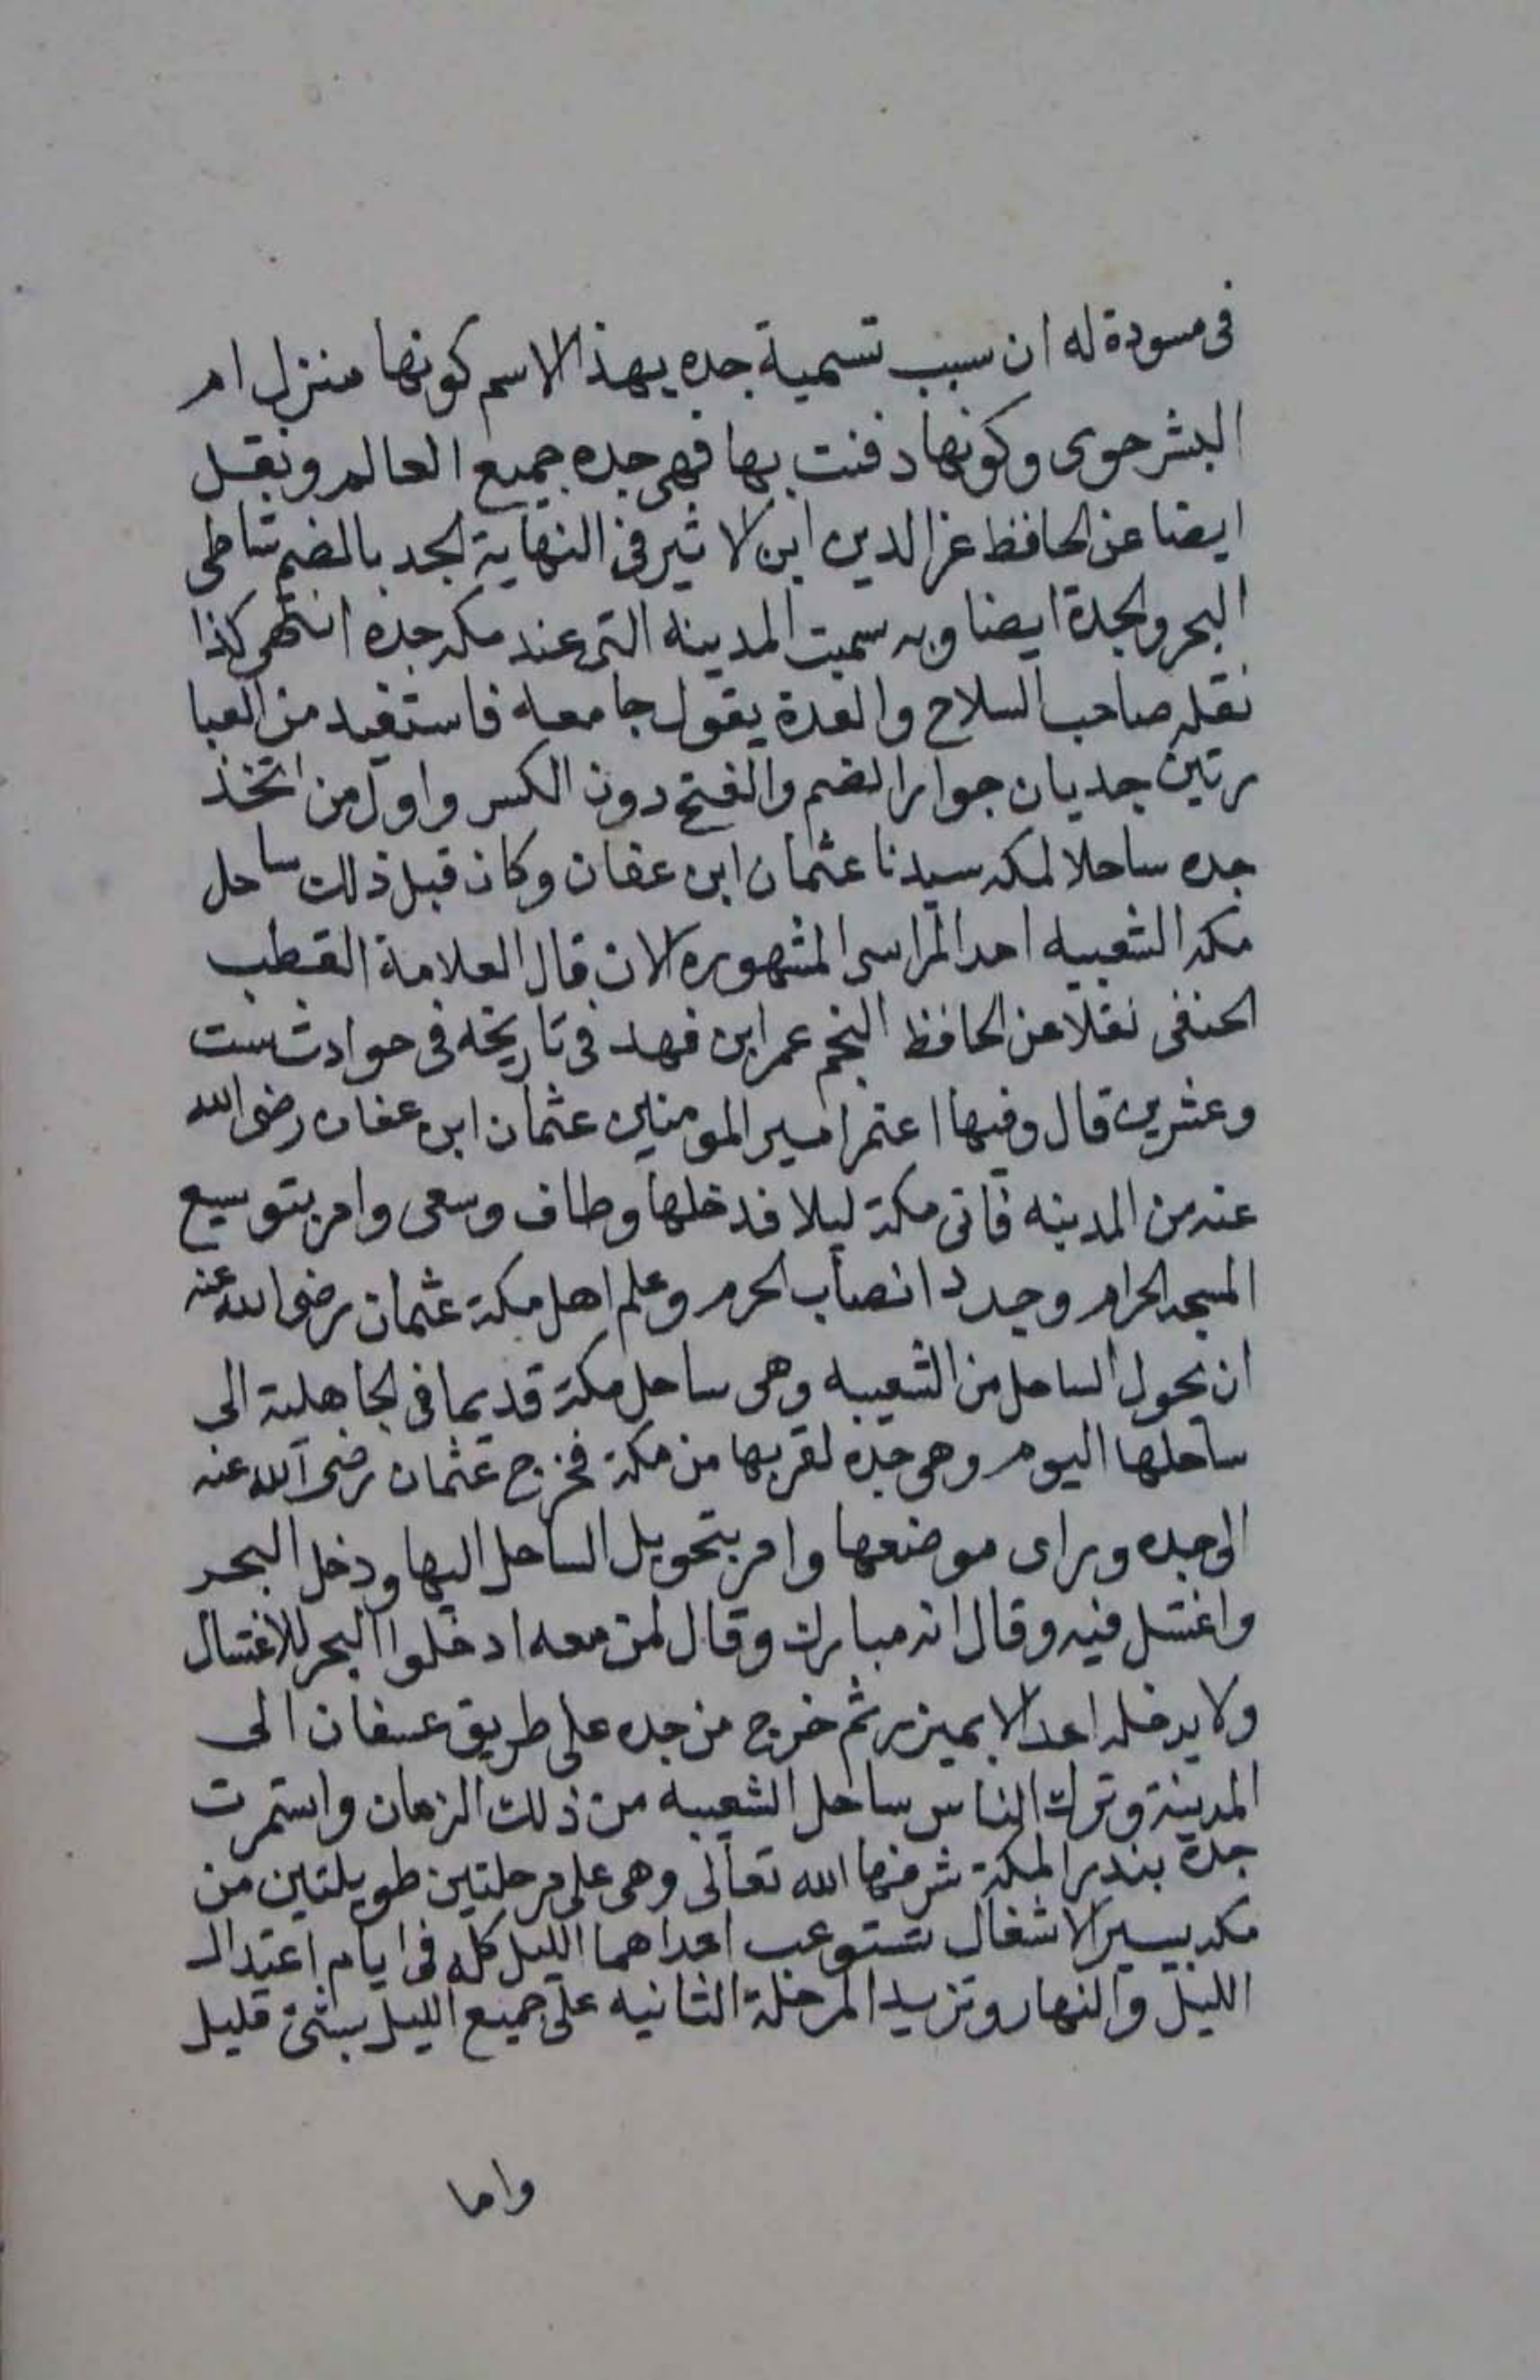 فى مسودة له ان سبب تسمية جده بهذا الاسم كونها منزل ام
البشر حوى وكونها دفنت بها فهى جده جميع العالم ونقل
ايضا عن الحافظ عز الدين ابن الاثير فى النهاية الجد بالضم شاطى
البحر والجدة ايضا وبه سميت المدينه التى عند مكه جده انتهى كذا
نقله صاحب السلاح والعدة يقول جامعه فاستفيد من العبا
رتين جديان جواز الضم والفتح دون الكسر واول من اتخذ
جده ساحلا لمكه سيدنا عثمان ابن عفان وكان قبل ذلك ساحل
مكه الشعبيه احد المراسى المشهوره الان قال العلامة القطب
الحنفى نقلا عن الحافظ النجم عمر ابن فهد فى تاريخه فى حوادث ست
وعشرين قال وفيها اعتمر امير المومنين عثمان ابن عفان رضى الله
عنه من المدينه فاتى مكة ليلا فدخلها وطاف وسعى وامر بتوسيع
المسجد الحرام وجدد انصاب الحرم وعلم اهل مكة عثمان رضى الله عنه
ان يحول الساحل من الشعيبه وهى ساحل مكة قديما فى الجاهلية الى
ساحلها اليوم وهى جده لقربها من مكة فخرج عثمان رضى الله عنه
الى جده وراى موضعها وامر بتحويل الساحل اليها ودخل البحر
واغتسل فيه وقال انه مبارك وقال لمن معه ادخلوا البحر للاغتسال
ولا يدخله احد الا بميزر ثم خرج من جده على طريق عسفان الى
المدينة وترك الناس ساحل الشعيبه من ذلك الزمان واستمرت
جدة بندرا لمكة شرفها الله تعالى وهى على مرحلتين طويلتين من
مكه بسير الاشغال تستوعب احداهما الليل كله فى ايام اعتدال
الليل والنهار وتزيد المرحلة الثانيه على جميع الليل بشئ قليل
واما